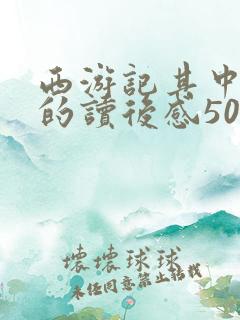 西游記其中
的讀後感50
壞壞球球
未经同意禁止转载